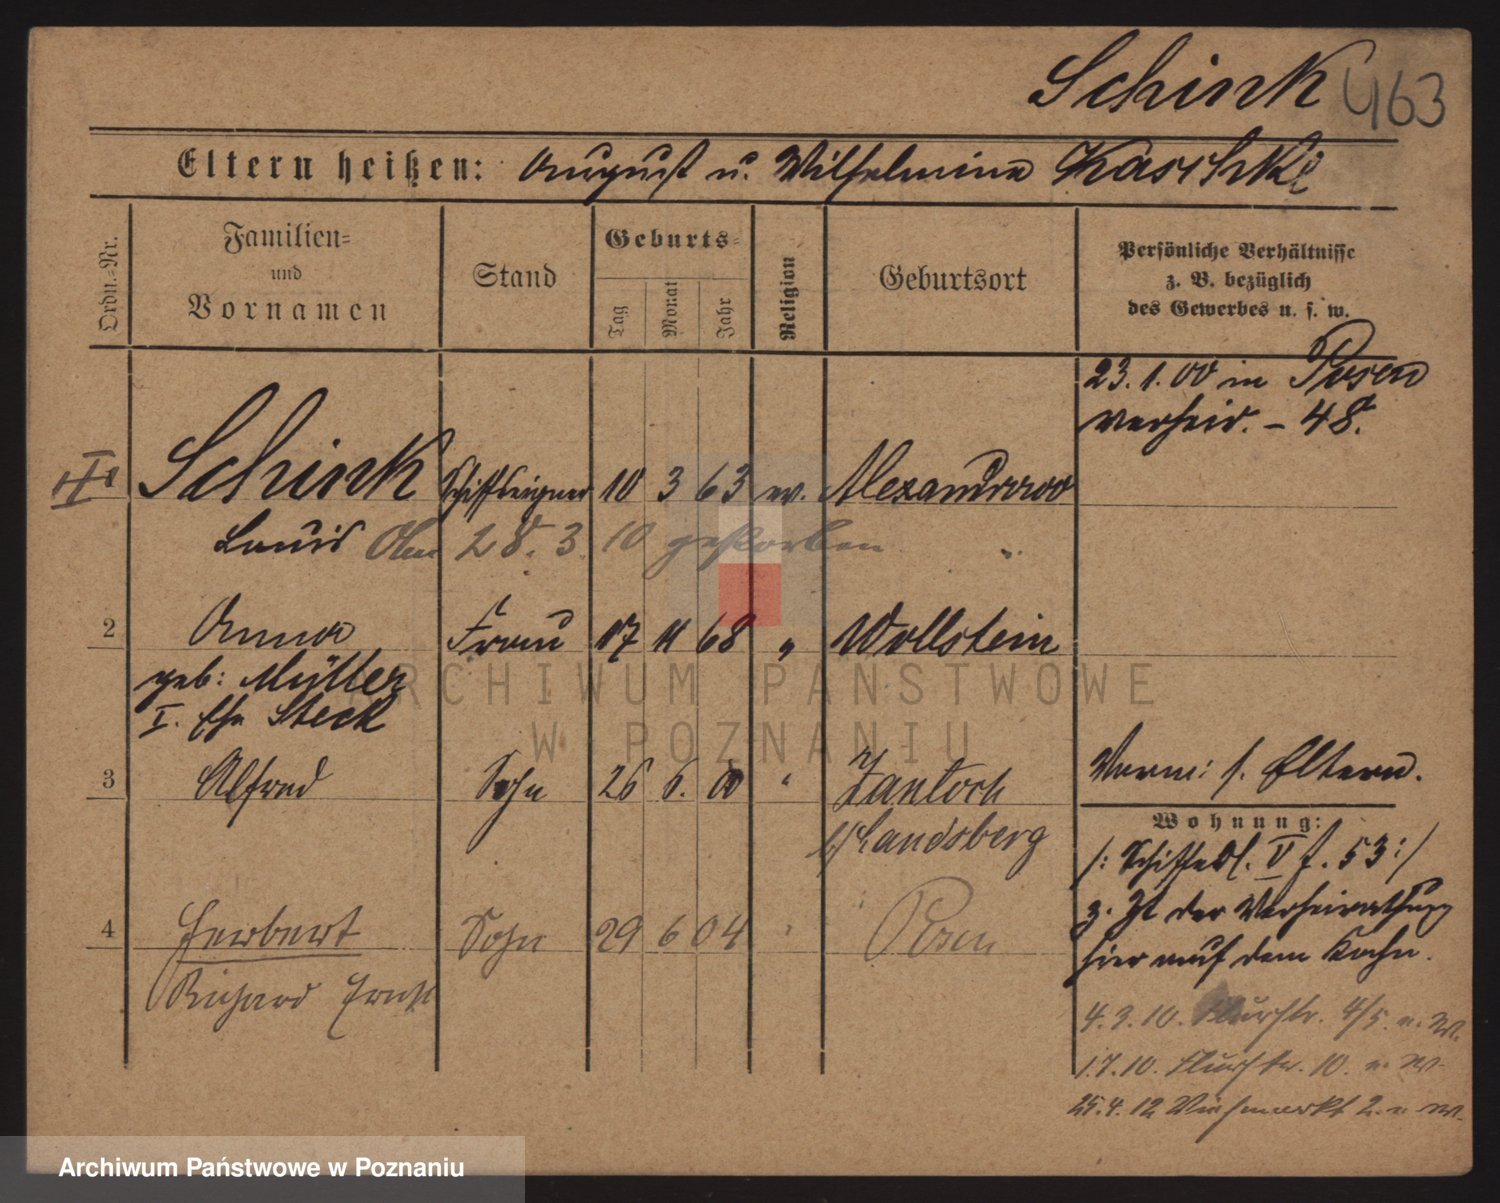 Schink 463
Eltern heißen: August u. Wilhelmine Kaschke
Ordn.-Nr.
Familien- und Vornamen
Stand
Geburts-
Tag
Monat
Jahr
Religion
Geburtsort
Persönliche Verhältnisse
z. B. bezüglich
des Gewerbes u. s. w.
23.1.00 in Posen
verheir. – 48.
Schink Schiffseigner 10 3 63 ev. Alexandrowo
Louis Am 28. 3 10 gestorben
2 Anna Frau 17 11 68 " Wollstein
geb: Müller
I. Ehe Steck
3 Alfred Sohn 26 6. 00 " Zantoch
b/Landsberg
Vorm: s. Eltern.
Wohnung:
/: Schiffe Bl. V f. 53 :/
z. Zt der Verheirathung
hier auf dem Kahn.
4 Herbert Sohn 29 6 04 " Posen
Richard Ernst
4.3.10. Flurstr. 4/5. n. W.
1.7.10. Flurstr. 10. n. W.
25.4.12 Viehmarkt 2. n. W.
ARCHIWUM PAŃSTWOWE
W POZNANIU
Archiwum Państwowe w Poznaniu